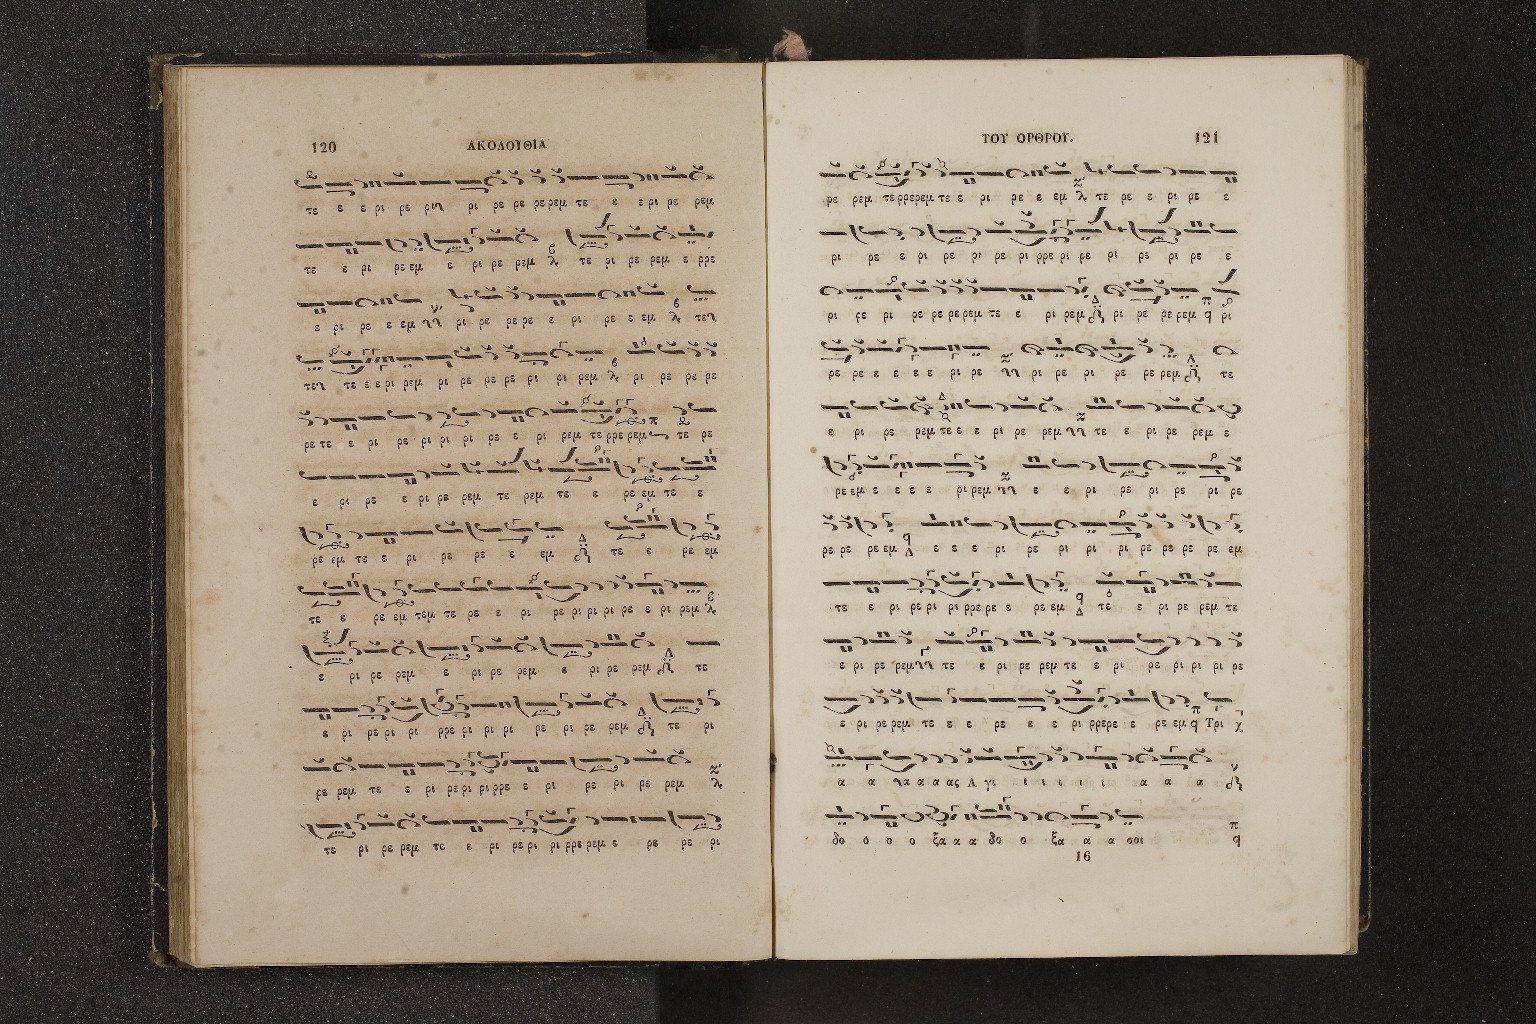 120 ΑΚΟΛΟΥΘΙΑ
τε ε ε ρι ρε ριλ ρι ρε ρε ρερεμ τε ε ε ρι ρε ρεμ
τε ε ρι ρε εμ ε ρι ρε ρεμ τε ρι ρε ρεμ ε ρρε
ε ρι ρε ε εμ ρι ρε ρε ρε ε ρι ρε ε εμ
τε ε ε ρι ρεμ ρι ρε ρε ρε ρι ρι ρεμ ρι ρε ρε ρε
ρε τε ε ρι ρε ρι ρι ρι ρε ε ρι ρεμ τε ρρε ρεμ τε ρε
ε ρι ρε ε ρι ρε ρεμ τε ρεμ τε ε ρε εμ τε ε
ρε εμ τε ε ρι ρε ρε ε εμ τε ε ρε εμ
τε ε ρε εμ τεμ τε ρε ε ρι ρε ρι ρι ρι ρε ε ρι ρεμ
ε ρι ρε ρεμ ε ρι ρε ρεμ ε ρι ρε ρεμ τε
ε ρι ρε ρι ρι ρρε ρι ρι ρι ρε ρι ρε ρεμ τε ρι
ρε ρεμ τε ε ρι ρε ρι ρι ρρε ε ρι ρε ρι ρε ρεμ
τε ρι ρε ρεμ τε ε ρι ρε ρι ρι ρρε ρεμ ε ρε ρε ρι
ΤΟΥ ΟΡΘΡΟΥ. 121
ρε ρεμ τε ρρερεμ τε ε ρι ρε ε εμ τε ρε ε ρι ρε ε
ρι ρε ε ρι ρε ρι ρε ρι ρρε ρι ρε ρι ρε ρι ρε ε
ρι ρε ρι ρε ρε ρε ρεμ τε ε ρι ρεμ ρι ρε ρε ρεμ ρι
ρε ρε ε ε ε ε ρι ρε ρι ρε ρι ρε ρε ρεμ τε
ε ρι ρε ρεμ τε ε ε ρι ρε ρεμ τε ε ρι ρε ρεμ ε
ρε εμ ε ε ε ε ρι ρεμ ε ε ρι ρε ρι ρε ρι ρε
ρε ρε ρε εμ ε ε ε ρι ρε ρι ρι ρι ρε ρε ρε ρε εμ
τε ε ρι ρε ρι ρι ρρε ρε ε ρε εμ τε ε ρι ρε ρεμ τε
ε ρι ρε ρεμ τε ε ρι ρε ρεμ τε ε ρι ρε ρι ρι ρι ρε
ε ρι ρε ρεμ τε ε ε ρε ε ε ρι ρρερε ε ρε εμ Τρι χ
α α α α α ας Α γι ι ι ι ι ι α α α
δο ο ο ο ξα α α δο ο ξα α α σοι
16